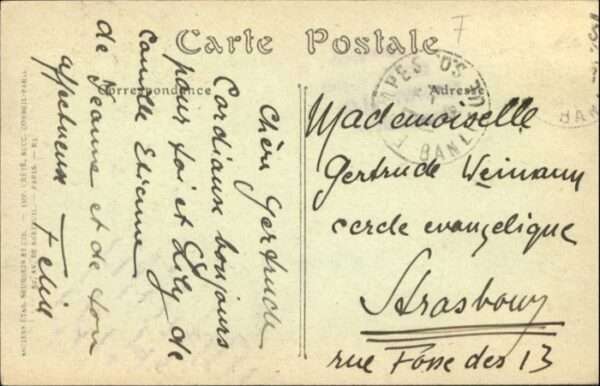 Carte Postale
Correspondance
Adresse
Chère Gertrude
Cordiaux bonjours
pour toi et Lily de
Camille Etienne
de Jeanne et de ton
affectueux Felix
Mademoiselle
Gertrude Weinann
cercle evangelique
Strasbourg
rue Fosse des 13
ANCIENS ETAB. NEURDEIN ET CIE. — IMP. CRÉTÉ, SUCC. CORBEIL-PARIS